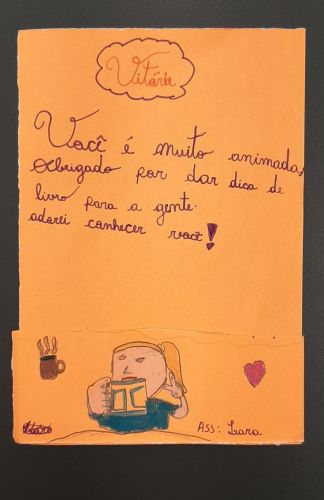 Vitória
Você é muito animada,
Obrigado por dar dica de
livro para a gente.
adorei conhecer você!
Ass: Lara